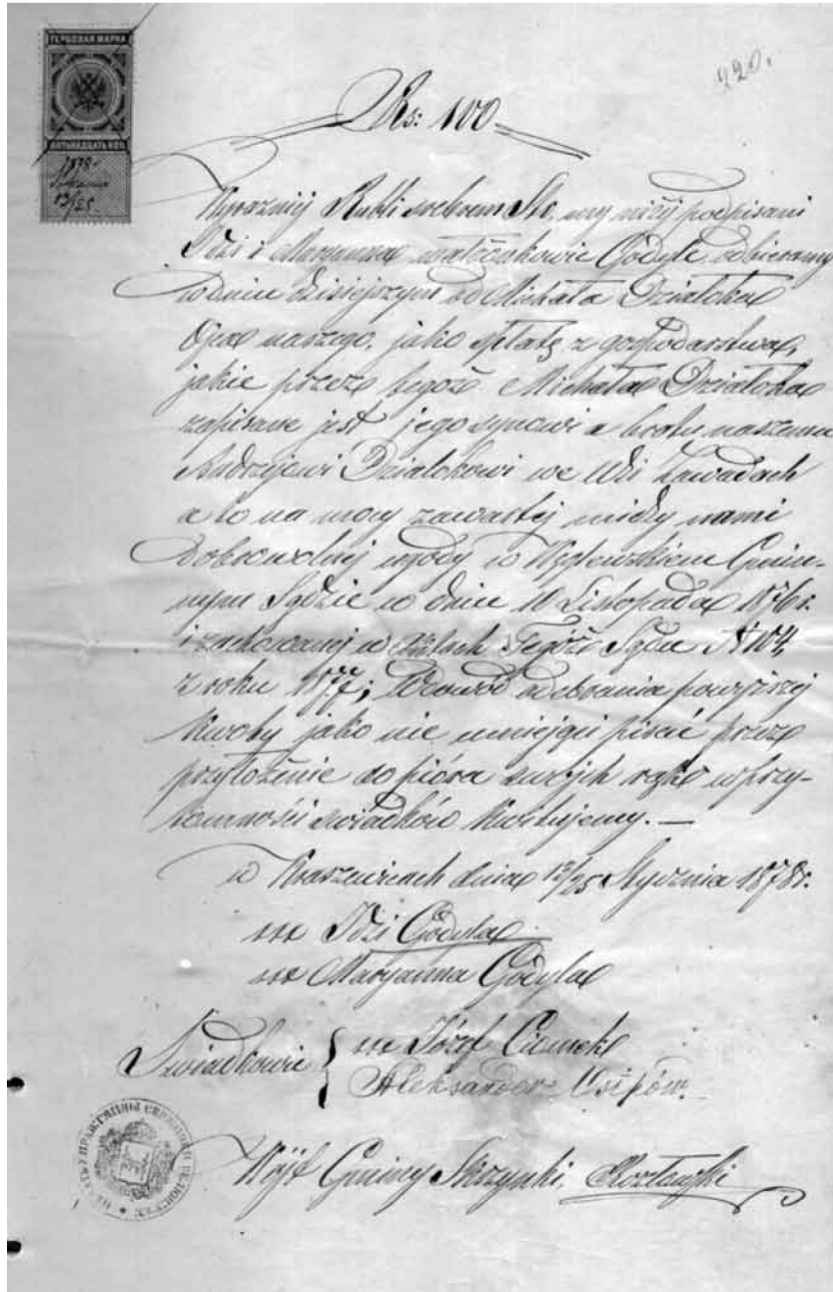 ГЕРБОВАЯ МАРКА
ПЯТЬНАДЦАТЬ КОП.
1878 r
13/25
220.
Rs: 100
Wyraźniej Rubli srebrem Sto, my niżej podpisani
Idzi i Maryanna małżonkowie Godyle odbieramy
w dniu dzisiejszym od Michała Działoka
Ojca naszego, jako spłatę z gospodarstwa,
jakie przez tegoż Michała Działoka
zapisane jest jego synowi a bratu naszemu
Andrzejowi Działokowi we Wsi Zawadach
a to na mocy zawartej między nami
Dobrowolnej ugody w Gmin-
nym Sądzie w dniu 10 Listopada 1876 r.
i zachowanej w aktach Tegoż Sądu N 104,
z roku 1877; Dowód odebrania powyższej
kwoty jako nie umiejący pisać przez
przyłożenie do pióra swojch rąk w przy-
tomności świadków kwitujemy. —
w Kraszewicach dnia 13/25 Stycznia 1878 r.
xxx Idzi Godyla
xxx Maryanna Godyla
Swiadkowie { xxx Józef
Aleksander Osipów
Wójt Gminy Skrzynki,